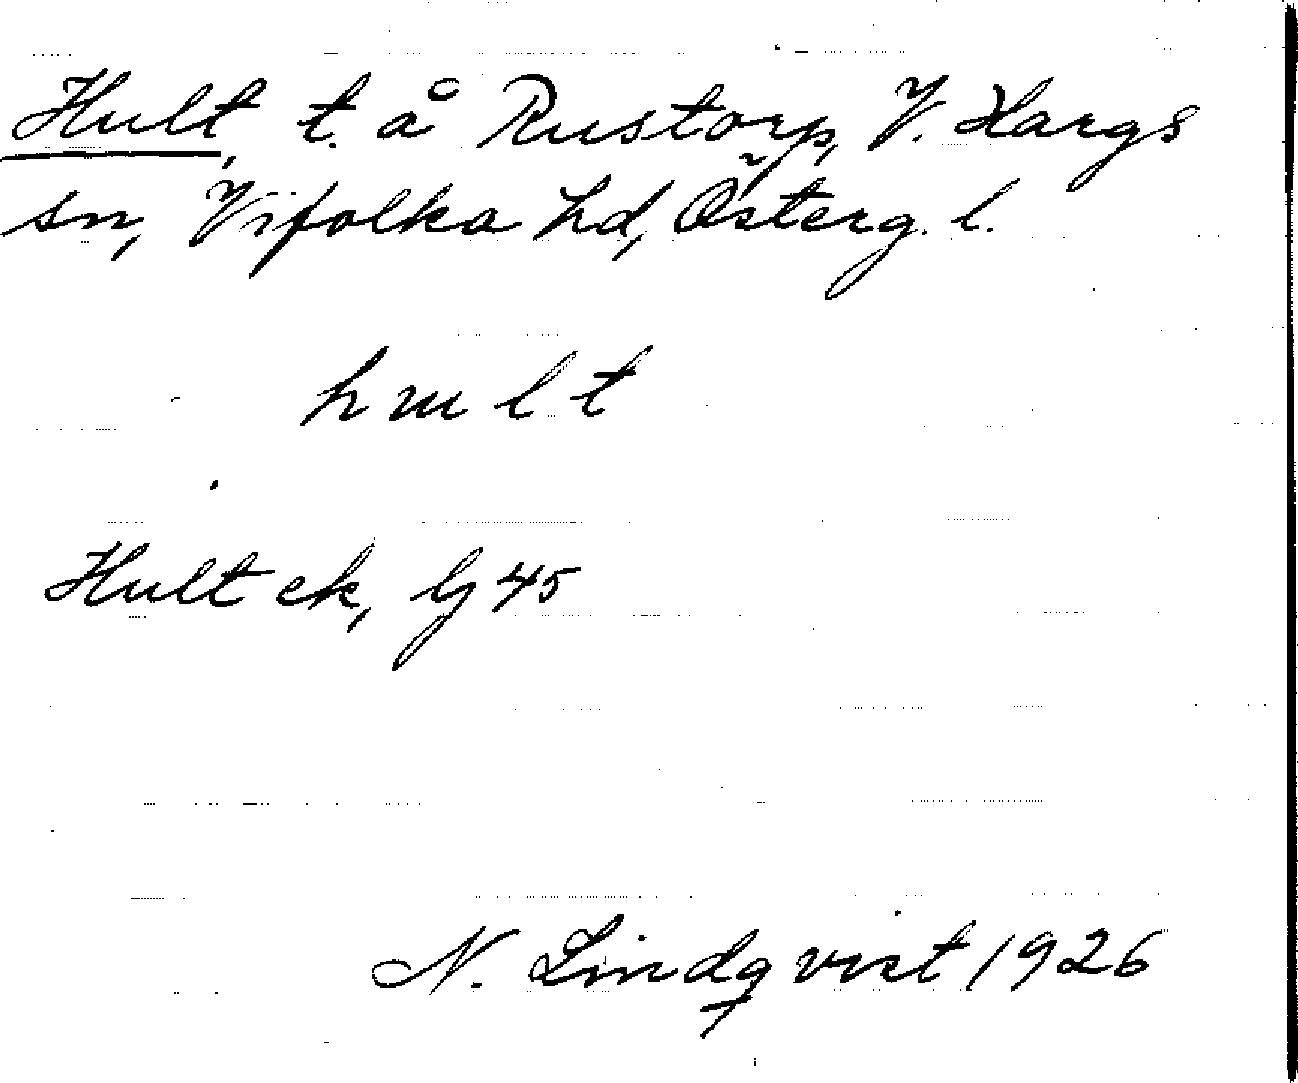 Hult, t. å Rustorp, V. Hargs
sn, Vifolka hd, Österg. l.
hult
Hult ek, lj 45
N. Lindqvist 1926